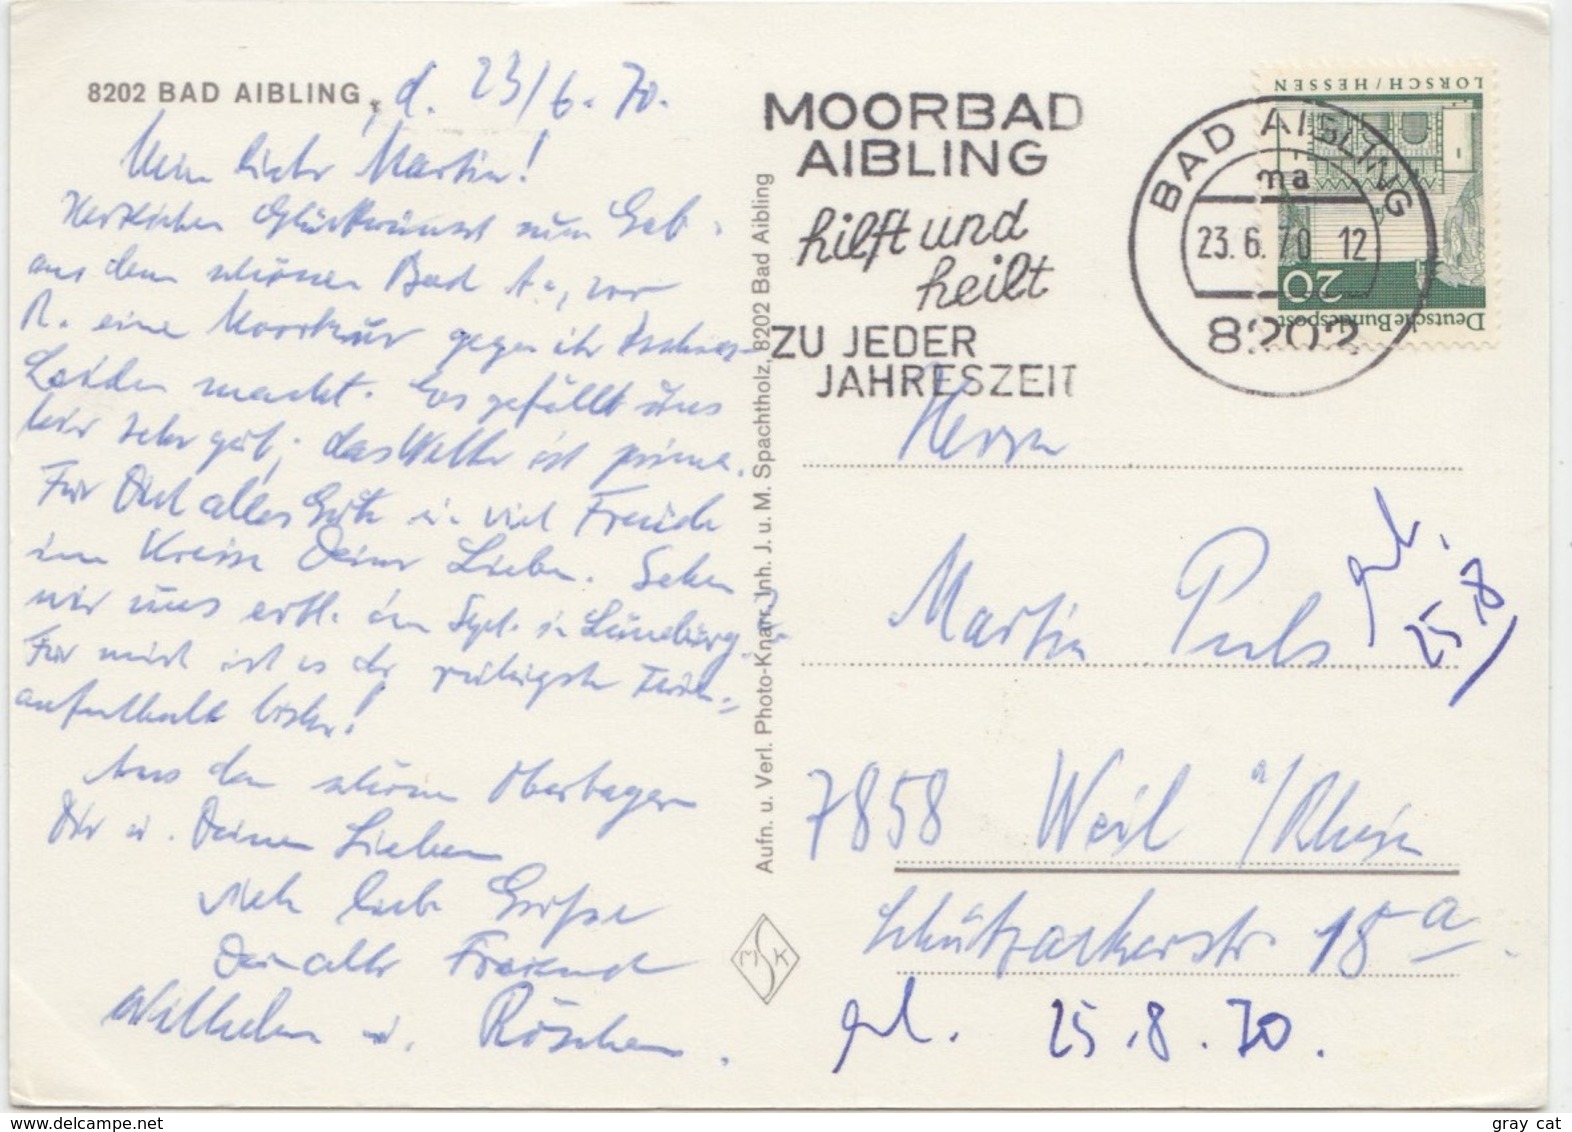 8202 BAD AIBLING, d. 23/6.70.
Mein lieber Martin!
Herzlichen Glückwunsch zum Geb.
aus dem schönen Bad A., wo
R. eine Moorkur gegen ihr
Leiden macht. Es gefällt uns
hier sehr gut, das Wetter ist prima.
Für Dich alles Gute u. viel Freude
im Kreise Deiner Lieben. Sehen
wir uns evtl. im Sept. in Lüneburg.
Für mich ist es der ruhigste Ferien=
aufenthalt bisher!
Aus dem schönen Oberbayern
Dir u. Deinen Lieben
viele liebe Grüße
Dein alter Freund
Wilhelm u. Röschen.
Aufn. u. Verl. Photo-Knarr, Inh. J. u. M. Spachtholz, 8202 Bad Aibling
MSK
MOORBAD
AIBLING
hilft und
heilt
ZU JEDER
JAHRESZEIT
BAD AIBLING
ma
23.6.70 12
8202
LORSCH/HESSEN
20
Deutsche Bundespost
Herrn
Martin
25.8
7858 Weil a/Rhein
Schützackerstr. 18a
25.8.70.
gray cat